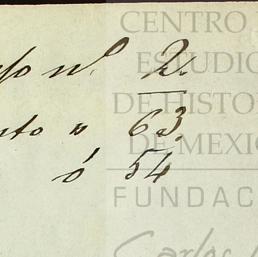 so nº 2.
nto " 63.
ó 54
CENTRO
ESTUDIO
DE HISTO
DE MEXIC
FUNDAC
Carlos